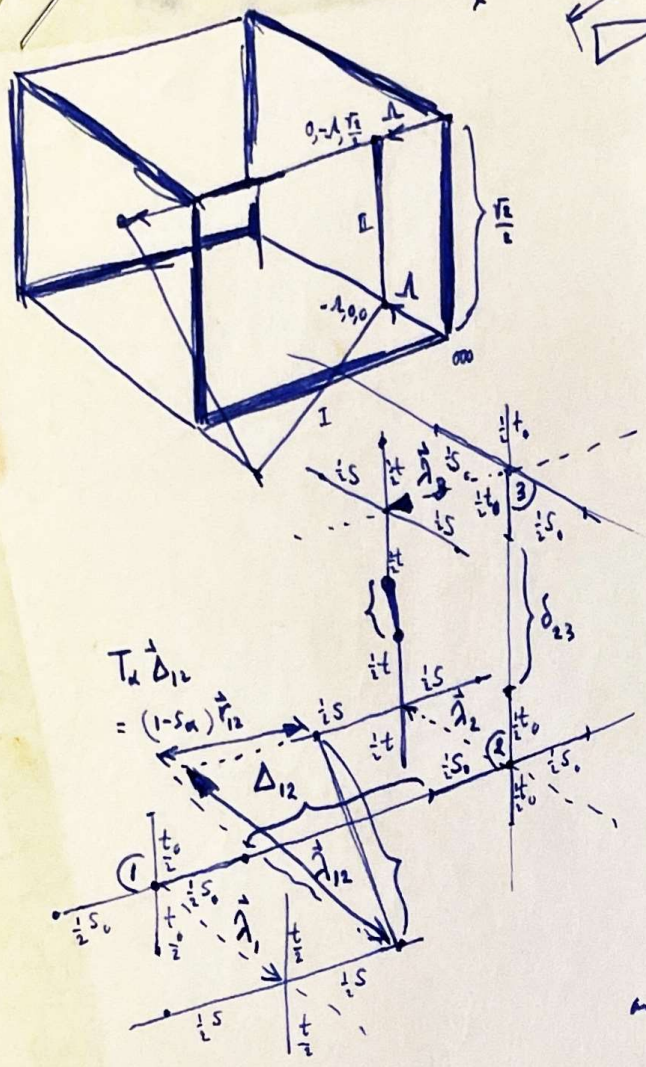 0,-Λ,√2/2
Λ
II
√2/2
-Λ,0,0
Λ
000
I
½t₀
½S₀
½t
λ⃗₃
½t₀
3
½S
½S
½S₀
½t
δ₂₃
½t
½S
T_α Δ⃗₁₂
= (1-S_α) r⃗₁₂
½S
λ⃗₂
½t
½t₀
2
½S₀
½S₀
½t₀
Δ₁₂
1
t₀/2
½S₀
λ⃗₁₂
½S₀
t₀/2
λ⃗₁
t/2
½S
½S
t/2